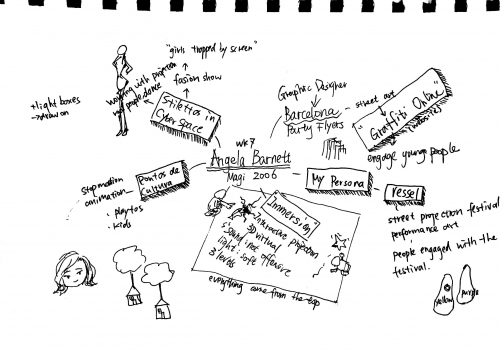 "girls trapped by screen"
fasion show
working with projection
and people dance
+light boxes
→draw on
Stilettos in
Cyber space
Graphic Designer
Barcelona
Party Flyers
street art
"Graffiti Online"
(website)
engage young people
wk7
Angela Barnett
Magi 2006
Pontos de
Cultura
Stopmotion
animation
playtos
kids
My Persona
Vessel
street projection festival
performance art
people engaged with the
festival.
"Immersion"
Interactive projection
3D virtual
sound: not offensive
light: soft
3 levels
everything came from the top
yellow
purple